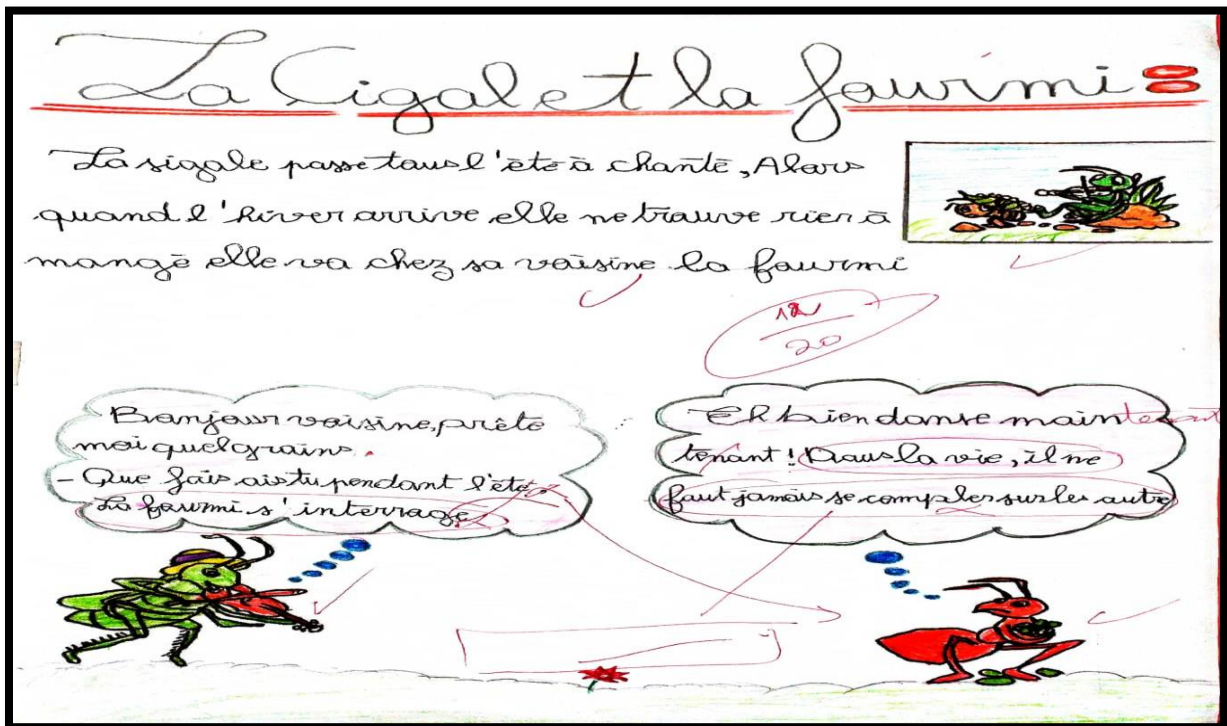 La Cigal et la fourmi :
La sigale passe tous l'été à chanté, Alors
quand l'hiver arrive elle ne trouve rien à
mangé elle va chez sa voisine la fourmi
12
20
Bonjour voisine, prête
moi quel grains.
- Que fais ais tu pendant l'été
La fourmi s'interroge
Eh bien danse maintenant
tenant ! Dans la vie, il ne
faut jamais se compler sur les autre